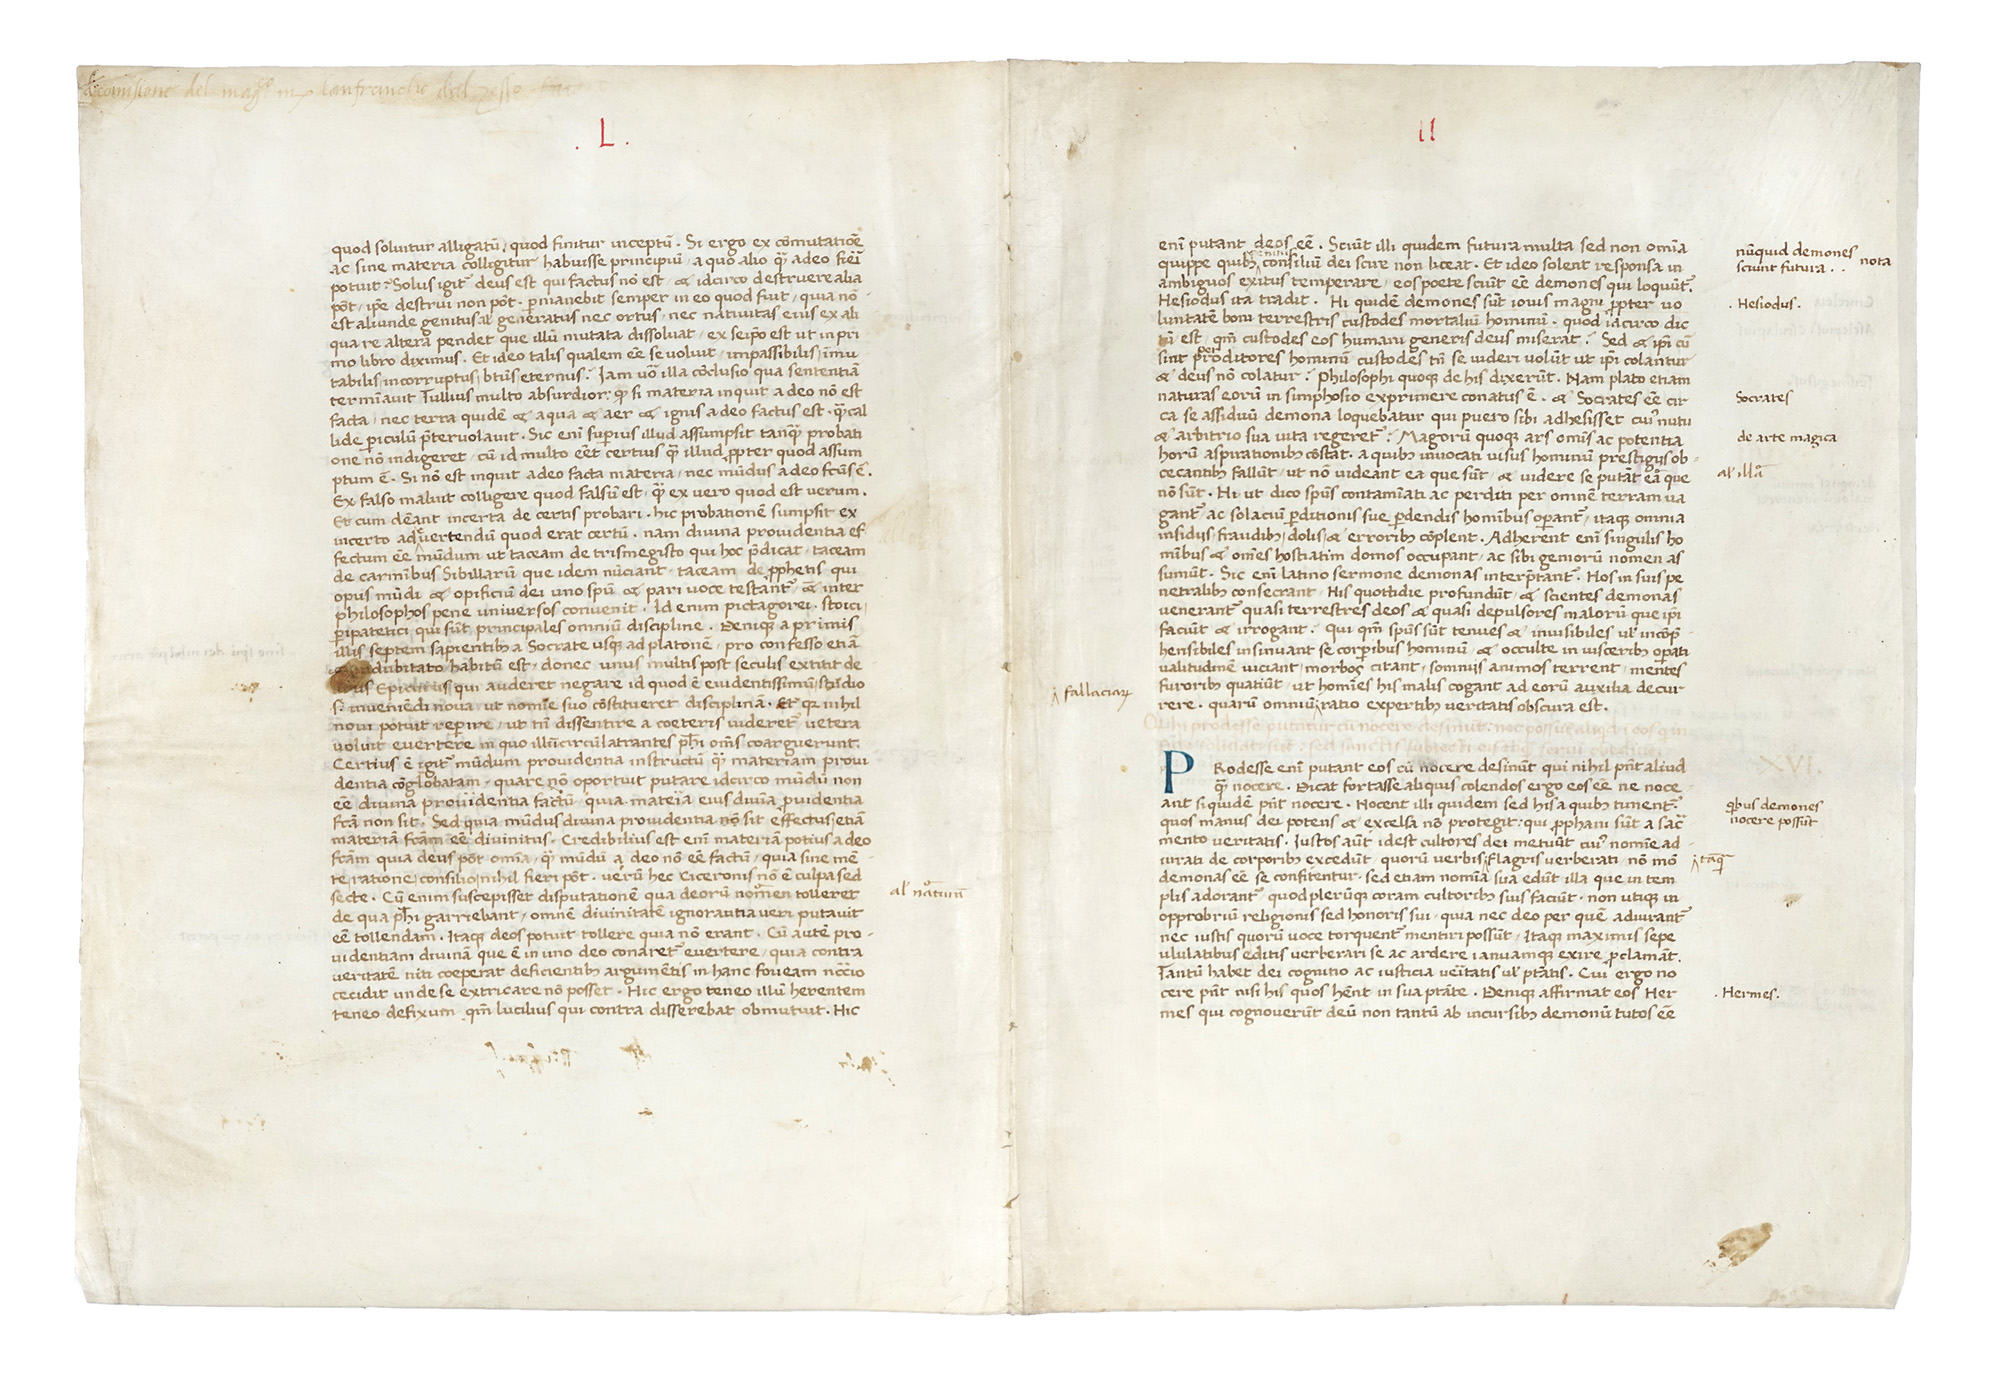 comisione del mag.co m. lanfrancho dal
. L .
quod soluitur alligatū, quod finitur inceptū. Si ergo ex cōmutatiōe
ac sine materia colligitur habuisse principiū, a quo alio q̄ a deo fieri
potuit? Solus igit̄ deus est qui factus nō est, & idcirco destruere alia
pōt, ip̄e destrui non pōt. p̱manebit semper in eo quod fuit, quia nō
est aliunde genitus ul̄ generatus nec ortus, nec nativitas eius ex ali
qua re altera pendet que illū mutata dissoluat, ex seip̄o est ut in pri
mo libro diximus. Et ideo talis qualem eē se uoluit, impassibilis, īmu
tabilis, incorruptus, btūs eternus? Iam uō illa cōclusio qua sententiā
terminauit Tullius multo absurdior: q̱ si materia inquit a deo nō est
facta, nec terra quidē & aqua & aer & ignis a deo factus est. q̄ cal
lide p̱iculū p̄teruolauit. Sic enī sup̱ius illud assumpsit tanq̄ probati
one nō indigeret, cū id multo eēt certius q̄ illud p̱pter quod assum
ptum ē. Si nō est inquit a deo facta materia, nec mūdus a deo fctūs ē.
Ex falso maluit colligere quod falsū est, q̄ ex uero quod est uerum.
Et cum dēant incerta de certis probari. hic probationē sumpsit ex
incerto ad euertendū quod erat certū. nam diuina prouidentia ef
fectum eē mūdum ut taceam de trismegisto qui hoc p̄dicat, taceam
de carmībus Sibillarū que idem nūciant, taceam de p̱phetis qui
opus mūdi & opificiū dei uno spū & pari uoce testant̄, & inter
philosophos pene uniuersos conuenit. Id enim pictagorei, stoici,
p̱ipatetici, qui sūt principales omniū discipline. Deniq; a primis
illis septem sapientib; a Socrate usq; ad platonē, pro confesso etiā
& indubitato habitū est, donec unus multis post seculis extitit de
lirus Epicurus, qui auderet negare id quod ē euidentissimū, studio
s. inueniēdi noua, ut nomīe suo cōstitueret disciplinā. Et q̱ nihil
noui potuit rep̱ire, ut tn̄ dissentire a coeteris uideret̄ uetera
uoluit euertere in quo illū circūlatrantes ph̄i om̄s coarguerunt.
Certius ē igit̄ mūdum prouidentia instructū q̄ materiam proui
dentia cōglobatam, quare nō oportuit putare idcirco mūdū non
eē diuina prouidentia factū, quia materia eius diuīa p̱uidentia
fcā non sit. Sed quia mūdus diuina prouidentia nō sit effectus, etiā
materiā fcām eē diuinitus. Credibilius est enī materiā potius a deo
fcām quia deus pōt omīa, q̄ mūdū a deo nō eē factū, quia sine mē
te, ratione, consilio, nihil fieri pōt. uerū hec Ciceronis nō ē culpa sed
secte. Cū enim suscepisset disputationē qua deorū nomen tolleret
de qua ph̄i garriebant, omnē diuinitatē ignorantia ueri putauit
eē tollendam. Itaq; deos potuit tollere quia nō erant. Cū autē pro
uidentiam diuinā que ē in uno deo conaret̄ euertere, quia contra
ueritatē niti coeperat deficientib; argumētis in hanc foueam nccīo
cecidit unde se extricare nō posset. Hic ergo teneo illū herentem
teneo defixum qm̄ lucilius qui contra disserebat obmutuit. Hic
al' nātum
II
enī putant deos eē. Sciūt illi quidem futura multa sed non omīa
quippe quib; consiliū dei scire non liceat. Et ideo solent responsa in
ambiguos exitus temperare, eos poete sciūt eē demones qui loquūt̄.
Hesiodus ita tradit. Hi quidē demones sūt iouis magni p̱pter uo
luntatē boni terrestris custodes mortaliū hominū. quod idcirco dic
tū est, qm̄ custodes eos humani generis deus miserat? Sed & ip̄i cū
sint proditores hominū custodes tn̄ se uideri uolūt ut ip̄i colantur
& deus nō colatur? Philosophi quoq; de his dixerūt. Nam plato etiam
naturas eorū in simphosio exprimere conatus ē. & Socrates eē cir
ca se assiduū demona loquebatur qui puero sibi adhesisset cui' nutu
& arbitrio sua uita regeret̄? Magorū quoq; ars omīs ac potentia
horū aspirationib; cōstat. a quib; inuocati uisus hominū prestigijs ob-
cecantib; fallūt, ut nō uideant ea que sūt, & uidere se putāt ea que
nō sūt. Hi ut dico spūs contamīati ac perditi per omnē terram ua
gant̄ ac solaciū p̱ditionis sue p̱dendis homīb; operant̄, itaq; omnia
insidijs, fraudib;, dolis, & errorib; cōplent. Adherent enī singulis ho
mīb; & omēs hostiatim domos occupant, ac sibi geniorū nomen as
sumūt. Sic enī latino sermone demonas interp̄tant̄. Hos in suis pe
netralib; consecrant. His quottidie profundūt, & scientes demonas
uenerant̄ quasi terrestres deos & quasi depulsores malorū que ip̄i
faciūt & irrogant. Qui qm̄ spūs sūt tenues & inuisibiles ul' incōp̄
hensibiles insinuant se corp̱ibus hominū, & occulte in uiscerib; op̱ati
ualitudinē uiciant, morbos citant, somnijs animos terrent, mentes
furorib; quatiūt, ut homīes his malis cogant ad eorū auxilia decur
rere. quarū omniū ratio expertib; ueritatis obscura est.
Rodesse enī putant eos cū nocere desinūt qui nihil pn̄t aliud
q̄ nocere. Dicat fortasse aliquis colendos ergo eos eē ne noce
ant siquidē pn̄t nocere. Nocent illi quidem sed his a quib; timent̄.
quos manus dei potens & excelsa nō protegit: qui p̱phani sūt a sac̄
mento ueritatis. Iustos aūt idest cultores dei metuūt cui' nomīe ad-
iurati de corporib; excedūt, quorū uerbis flagris uerberati, nō mō
demonas eē se confitentur. sed etiam nomīa sua edūt illa que in tem
plis adorant̄, quod plerūq; coram cultorib; suis faciūt. non utiq; in
opprobriū religionis sed honoris sui, quia nec deo per quē adiurant̄
nec iustis quorū uoce torquent̄ mentiri possūt. Itaq; maximis sepe
ululatibus editis uerberari se ac ardere iamiamq; exire p̱clamāt.
Tantū habet dei cognitio ac iusticia ueritatis ul' ptātis. Cui ergo no
cere pn̄t nisi his quos hēnt in sua ptāte. Deniq; affirmat eos Her
mes qui cognouerūt deū non tantū ab incursib; demonū tutos eē
P
nūquid demones
sciunt futura . . nota
. Hesiodus.
Socrates
de arte magica
al' illā
fallaciarꝝ
q̱bus demones
nocere possūt
tāq̄
. Hermes.